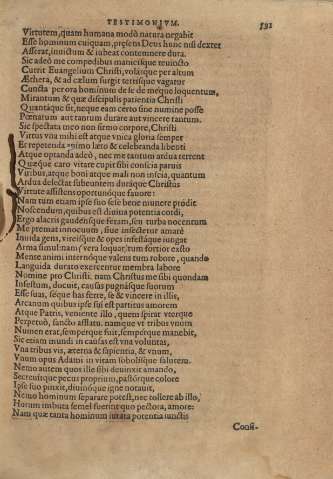 TESTIMONIVM. 532
Virtutem, quam humana modò natura negabit
Esse hominum cuiquam, præsens Deus hunc nisi dextet
Asserat, inuictum & iubeat contemnere dura.
Sic adeò me compedibus manicisque reuincto
Currit Euangelium Christi, volatque per altum
Æthera, & ad cælum surgit terrisque vagatur
Cuncta per ora hominum de se de meque loquentum,
Mirantum & quæ discipulis patientia Christi
Quantaque sit, neque eam certo sine numine posse
Pœnatum aut tantum durare aut vincere tantum.
Sic spectata meo non firmo corpore, Christi
Virtus vna mihi est atque vnica gloria semper
Et repetenda animo læto & celebranda libenti
Atque optanda adeò, nec me tantum ardua terrent
Quæque caro vitare cupit sibi conscia parnis
Viribus, atque boni atque mali non inscia, quantum
Ardua delectat subeuntem duraque Christus
Virtute assistens oportunóque fauore:
Nam tum etiam ipse suo sese bene munere prodit
Noscendum, quibus est diuina potentia cordi,
Ergo alacris gaudensque feram, seu turba nocentum
Me premat innocuum, siue insectetur amaré
Inuida gens, vireisque & opes infestáque iungat
Arma simul: nam (vera loquar) tum fortior exsto
Mente animi internóque valens tum robore, quando
Languida durato exercentur membra labore
Nomine pro Christi. nam Christus me sibi quondam
Infestum, docuit, causas pugnásque suorum
Esse suas, séque has ferre, se & vincere in illis,
Arcanum quibus ipse sui est partitus amorem
Atque Patris, veniente illo, quem spirat vterque
Perpetuò, sancto afflatu. namque vt tribus vnum
Numen erat, semperque fuit, sempérque manebit,
Sic etiam mundi in causas est vna voluntas,
Vna tribus vis, æterna & sapientia, & vnum,
Vnum opus Adami in vitam sobolisque salutem.
Nemo autem quos ille sibi deuinxit amando,
Secreuitque pecus proprium, pastórque colore
Ipse suo pinxit, diuinóque igne notauit,
Nemo hominum separare potest, nec tollere ab illo,
Horum imbuta semel fuerint quo pectora, amore:
Nam quæ tanta hominum iurata potentia iunctis
Consi-